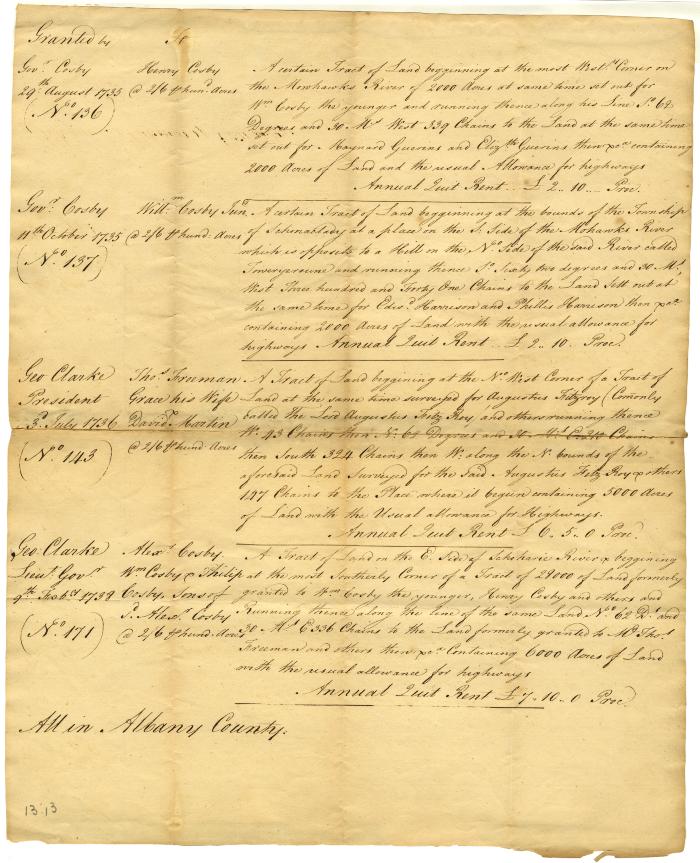 Granted by To
Gov.r Cosby Henry Cosby A certain Tract of Land begginning at the most West.n Corner on
29.th August 1735 @ 2/6 ⅌ hund. Acres the Mowhawks River of 2000 Acres at same time set out for
(N.o 136) W.m Cosby the younger and running thence along his Line S.o 62
Degrees and 30 M.s West 339 Chains to the Land at the same time
set out for Maynard Guerens and Eliz.th Guerens then &c.a containing
2000 Acres of Land and the usual Allowance for highways
Annual Quit Rent .. £ 2 .. 10 .. Proc.
Gov.r Cosby Will.m Cosby Jun.r A certain Tract of Land begginning at the bounds of the Township
11.th October 1735 @ 2/6 ⅌ hund. Acres of Schenablidy at a place on the S. Side of the Mohawks River
(N.o 137) which is opposite to a Hill on the N.o Side of the said River called
and running thence S.o Sixty two degrees and 30 M.s
West Three hundred and Forty One Chains to the Land Sett out at
the same time for Edw.d Harrison and Phillis Harrison then &c.a
containing 2000 Acres of Land with the usual allowance for
highways Annual Quit Rent .. £ 2 .. 10 .. Proc.
Geo Clarke Tho.s Freeman A Tract of Land beggining at the N.o West Corner of a Tract of
President Grace his Wife Land at the same time surveyed for Augustus Fitzroy (Comonly
3.d July 1736 David Martin called the Lord Augustus Fitz Roy and others running thence
(N.o 143) @ 2/6 ⅌ hund. Acres W. 43 Chains then N. 62 Degrees and 30 M.s Chains
then South 324 Chains then W. along the N. bounds of the
aforesaid Land Surveyed for the Said Augustus Fitz Roy & others
147 Chains to the Place where it begun containing 5000 Acres
of Land with the Usual allowance for Highways.
Annual Quit Rent £ 6 .. 5 .. 0 Proc.
Geo: Clarke Alex.r Cosby A Tract of Land on the E. Side of Schoharie River & beggining
Lieu.t Gov.r W.m Cosby & Philip at the most Southerly Corner of a Tract of 22000 of Land formerly
9.th 1739 Cosby, Sons of granted to W.m Cosby the younger, Henry Cosby and others and
(N.o 171) Alex.r Cosby Running thence along the line of the same Land N.o 62 D.s and
@ 2/6 ⅌ hund. Acres 30 M.s E 336 Chains to the Land formerly granted to M.r Tho.s
Freeman and others then &c.a Containing 6000 Acres of Land
with the usual allowance for highways
Annual Quit Rent £ 7 .. 10 .. 0 Proc.
All in Albany County.
13 13